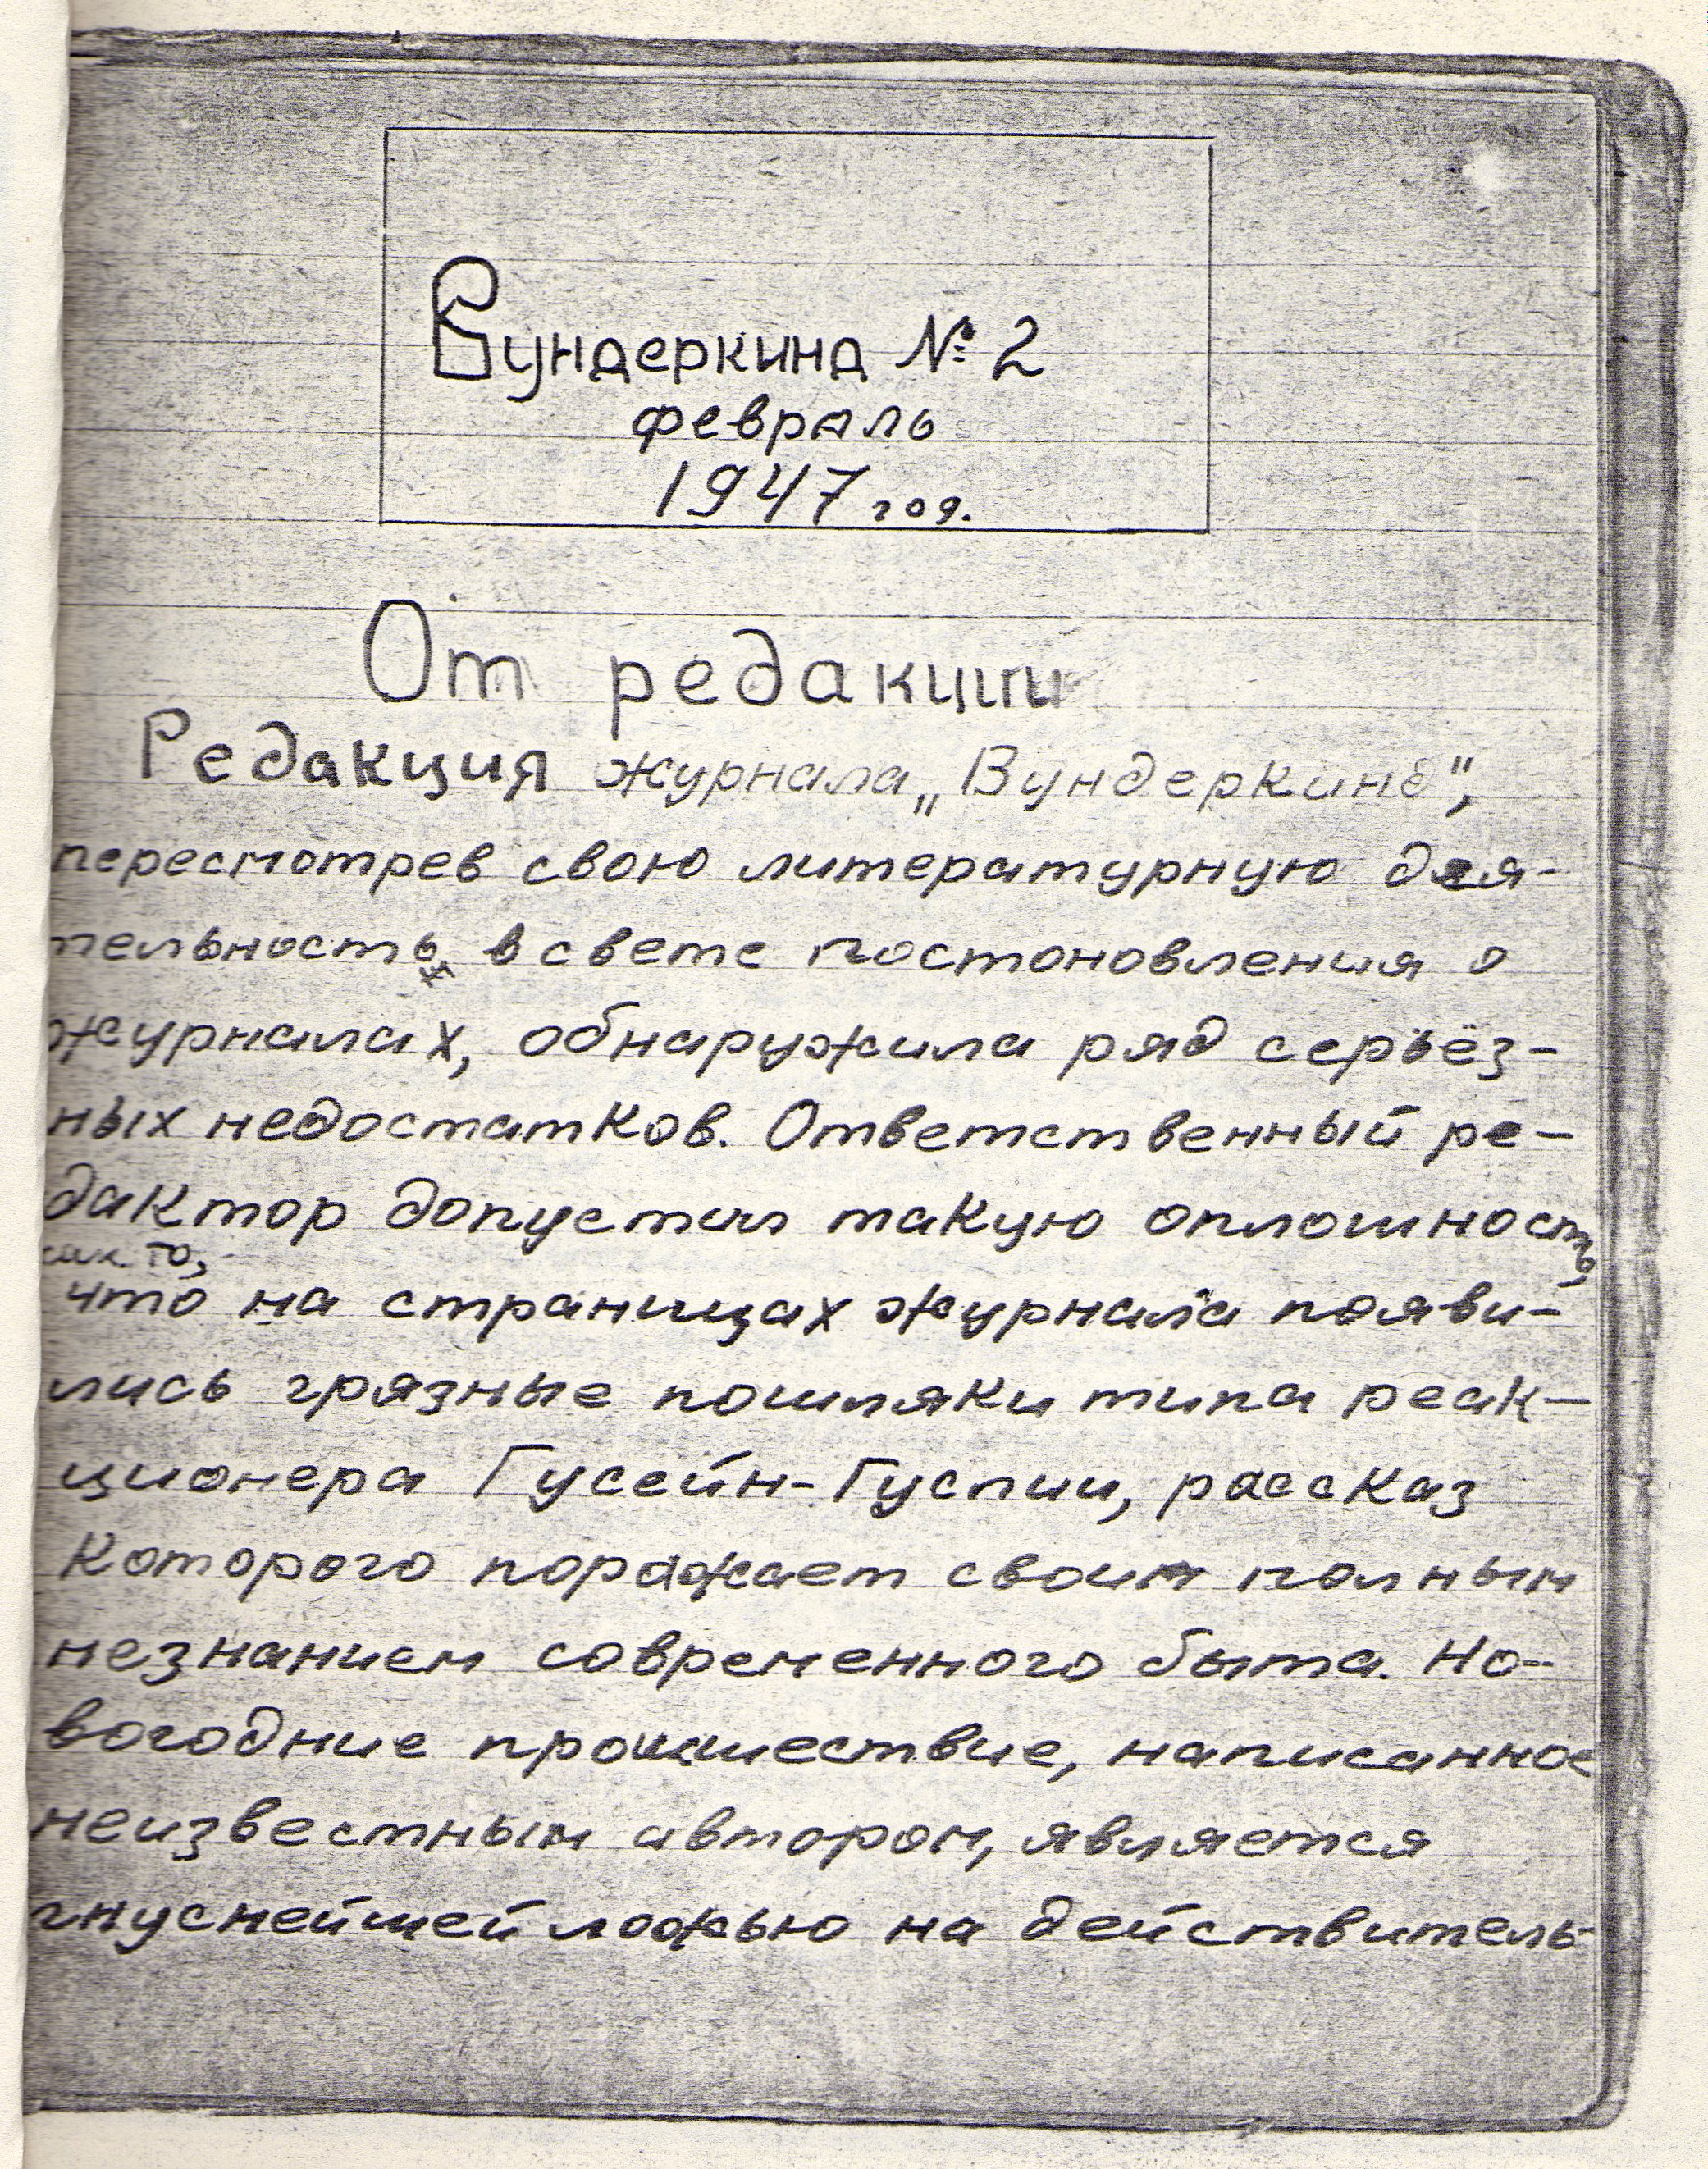 Вундеркинд № 2
февраль
1947 год.
От редакции
Редакция журнала „Вундеркинд",
пересмотрев свою литературную дея-
тельность в свете постоновления о
журналах, обнаружила ряд серьёз-
ных недостатков. Ответственный ре-
дактор допустил такую оплошность,
как то,
что на страницах журнала появи-
лись грязные пошляки типа реак-
ционера Гусейн-Гуслии, рассказ
которого поражает своим полным
незнанием современного быта. Но-
вогодние происшествие, написанное
неизвестным автором, является
гнуснейшей ложью на действитель-